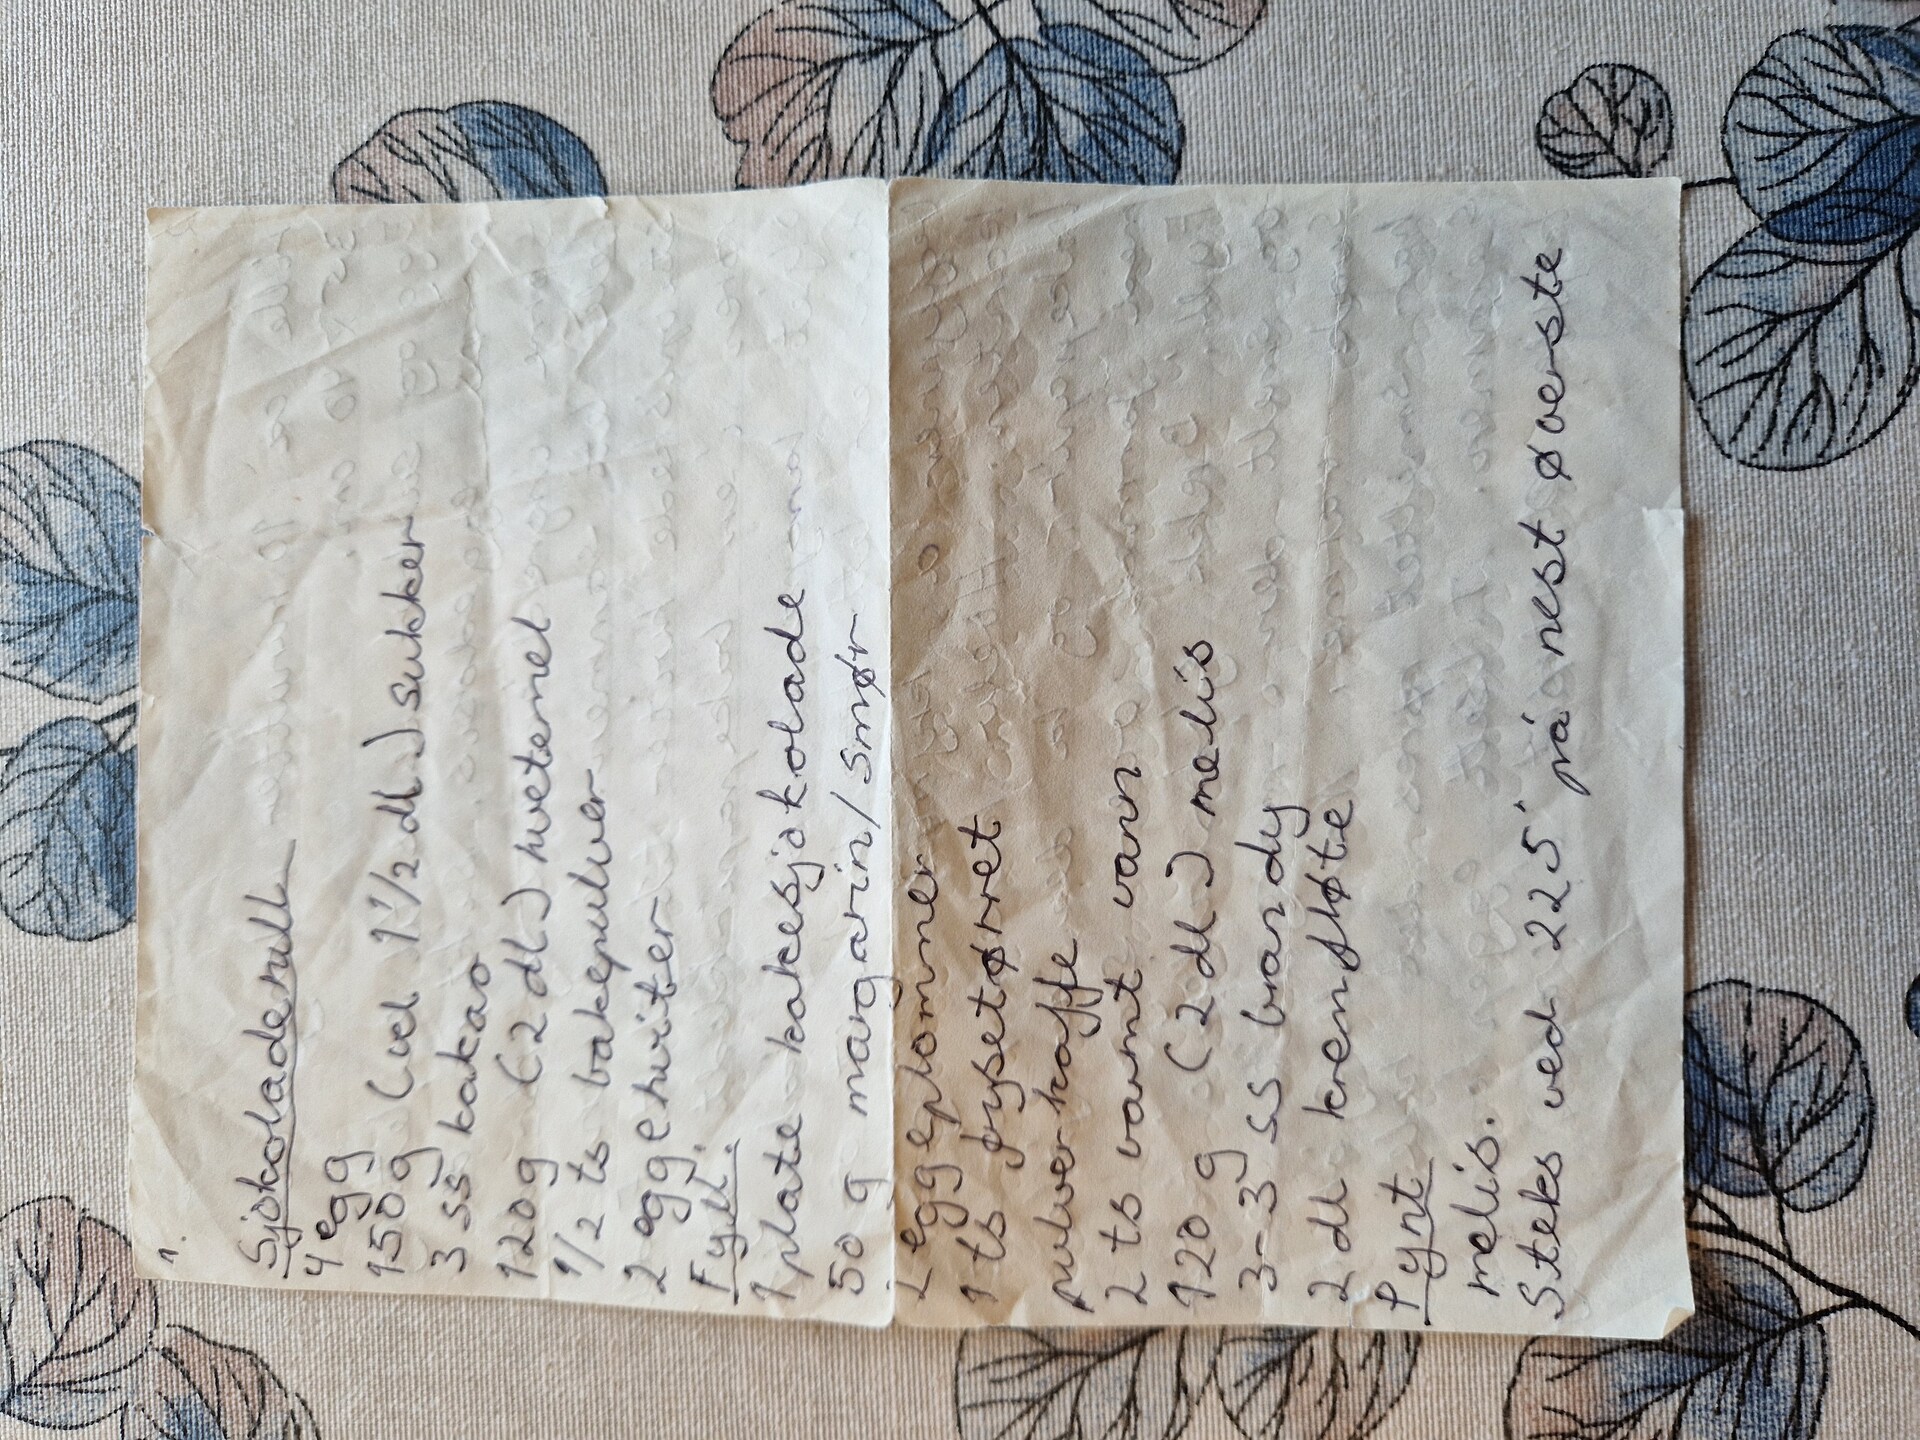 1.
Sjokoladerull
4 egg
150 g (vel 1 1/2 dl) sukker
3 ss kakao
120 g (2 dl) hvetemel
1/2 ts bakepulver
2 eggehviter
Fyll:
1 plate kokesjokolade
50 g margarin/smør
2 eggeplommer
1 ts frysetørret
pulverkaffe
2 ts varmt vann
120 g (2 dl) melis
3-3 ss brandy
2 dl kremfløte
Pynt
melis.
Steks ved 225° på nest øverste